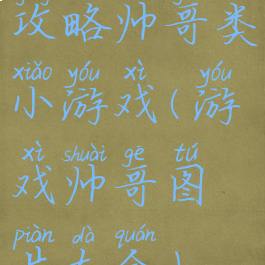 攻略帅哥类
xiǎo yóu xì yóu
小游戏(游
xì shuài gē tú
戏帅哥图
piàn dà quán
片大全)